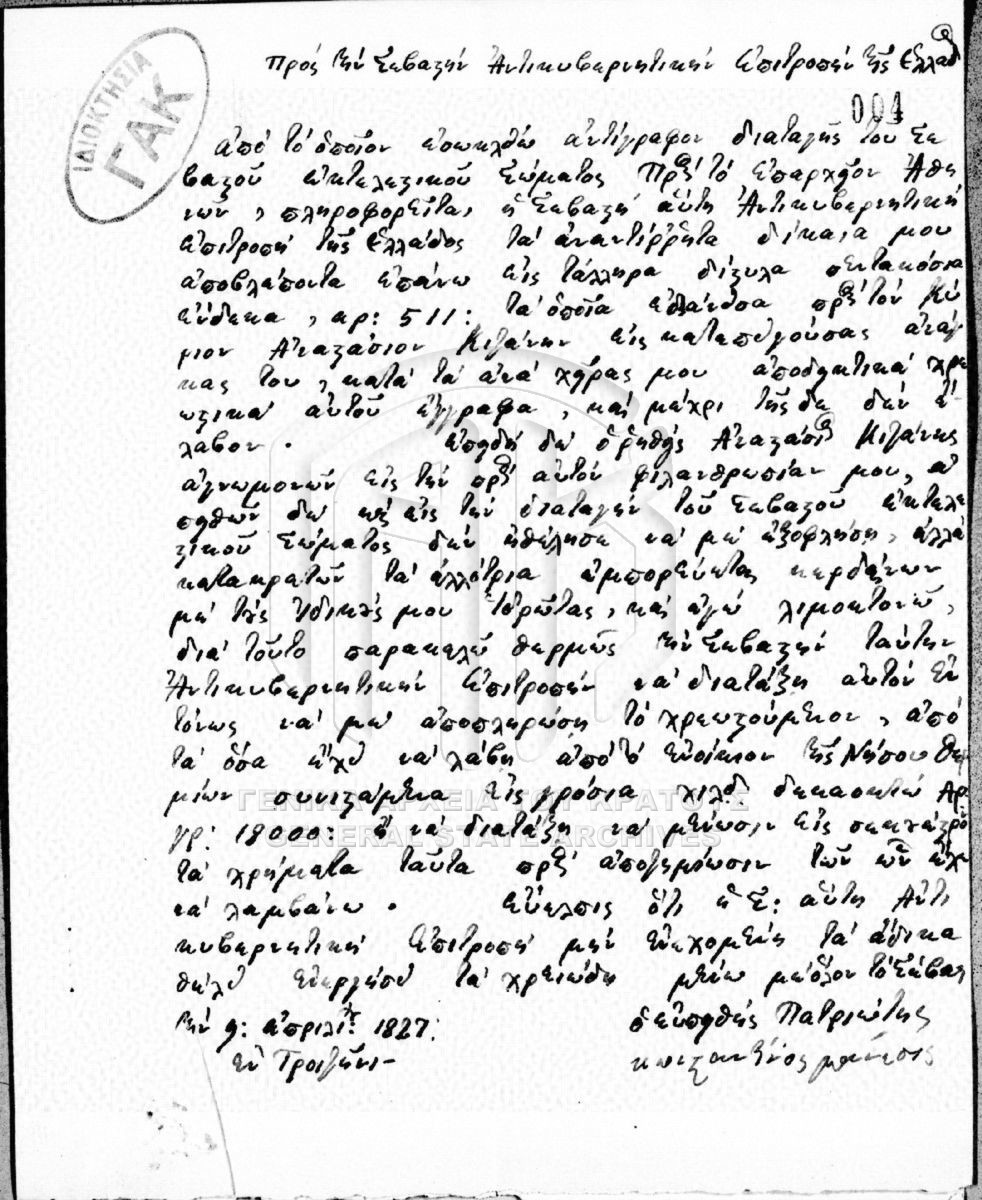 ΙΔΙΟΚΤΗΣΙΑ
ΓΑΚ
Πρὸς τὴν Σεβαστὴν Ἀντικυβερνητικὴν Ἐπιτροπὴν τῆς Ἑλλάδ
004
ἀπὸ τὸ ὁποῖον ἐσωκλείω ἀντίγραφον διαταγῆς τοῦ Σε
βαστοῦ ἐκτελεστικοῦ Σώματος Πρὸς τὸ Ἐπαρχεῖον Ἀθη
νῶν, πληροφορεῖται ἡ Σεβαστὴ αὕτη Ἀντικυβερνητικὴ
ἐπιτροπὴ τῆς Ἑλλάδος τὰ ἀναντίῤῥητα δίκαιά μου
ἀποβλέποντα ἐπάνω εἰς τάλληρα δίστυλα πεντακόσια
ἕνδεκα, αρ: 511: τὰ ὁποῖα ἐδάνεισα πρὸς τὸν Κύ
ριον Ἀναστάσιον εἰς κατεπειγούσας ἀνάγ
κας του, κατὰ τὰ ἀνὰ χεῖρας μου ἀποδεικτικὰ χρε
ωστικὰ αὐτοῦ ἔγγραφα, καὶ μέχρι τῆς δε δὲν ἔ
λαβον. ἐπειδὴ δὲ ὁ ῥηθεὶς Ἀναστάσι
ἀγνωμονῶν εἰς τὴν πρὸς αὐτὸν φιλανθρωπίαν μου, ἀ
πειθῶν δὲ καὶ εἰς τὴν διαταγὴν τοῦ Σεβαστοῦ ἐκτελε
στικοῦ Σώματος δὲν ἠθέλησε νὰ μὲ ἐξοφλήσῃ, ἀλλὰ
κατακρατῶν τὰ ἀλλότρια ἐμπορεύεται κερδαίνων
μὲ τοὺς ἰδικούς μου ἱδρῶτας, καὶ ἐγὼ λιμοκτονῶ,
διὰ τοῦτο παρακαλῶ θερμῶς τὴν Σεβαστὴν ταύτην
Ἀντικυβερνητικὴν Ἐπιτροπὴν νὰ διατάξῃ αὐτὸν ἐν
τόνως νὰ μὲ ἀποπληρώσῃ τὸ χρεωστούμενον, ἀπὸ
τὰ ὅσα ἔχει νὰ λάβῃ ἀπὸ τὸ ἐνοίκιον τῆς Νήσου Θερ
μίων συνιστάμενα εἰς γρόσια χιλ: δεκαοκτὼ Αρ:
γρ: 18000: ἢ νὰ διατάξῃ νὰ μείνωσιν εἰς
τὰ χρήματα ταῦτα πρὸς ἀποζημίωσιν τῶν ὧν ἔχω
νὰ λαμβάνω. εὔελπις ὅτι ἡ Σ: αὕτη Ἀντι
κυβερνητικὴ Ἐπιτροπὴ μὴν ἀνεχομένη τὰ ἄδικα
θέλει ἐνεργήσει τὰ χρειώδη μένω μὲ ὅλον τὸ Σέβας
τὴν 9: ἀπριλί: 1827:
ὁ εὐπειθὴς Πατριώτης
ἐν Τροιζῆνι
ΓΕΝΙΚΑ ΑΡΧΕΙΑ ΤΟΥ ΚΡΑΤΟΥΣ
GENERAL STATE ARCHIVES